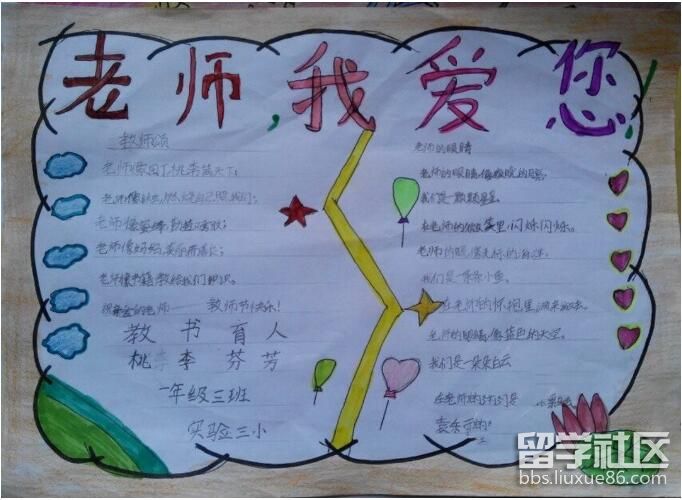 老师,我爱您
教师颂
老师像园丁,桃李满天下;
老师像蜡烛,燃烧自己照我们;
老师像蜜蜂,勤勤
老师像妈妈,
老师像书籍,教给我们知识。
祝 的老师——教师节快乐!
教书育人
桃李芬芳
一年级三班
实验三小
老师的眼睛
老师的眼睛,像
我们是一颗颗星星
在老师的 里,闪烁闪烁。
老师的眼,像 的海洋
我们是一条条小鱼
在老师的怀抱里,游来游去。
老师的眼睛,像蓝色的天空。
我们是一朵朵白云
在老师的
留学社区
bbs.liuxue86.com